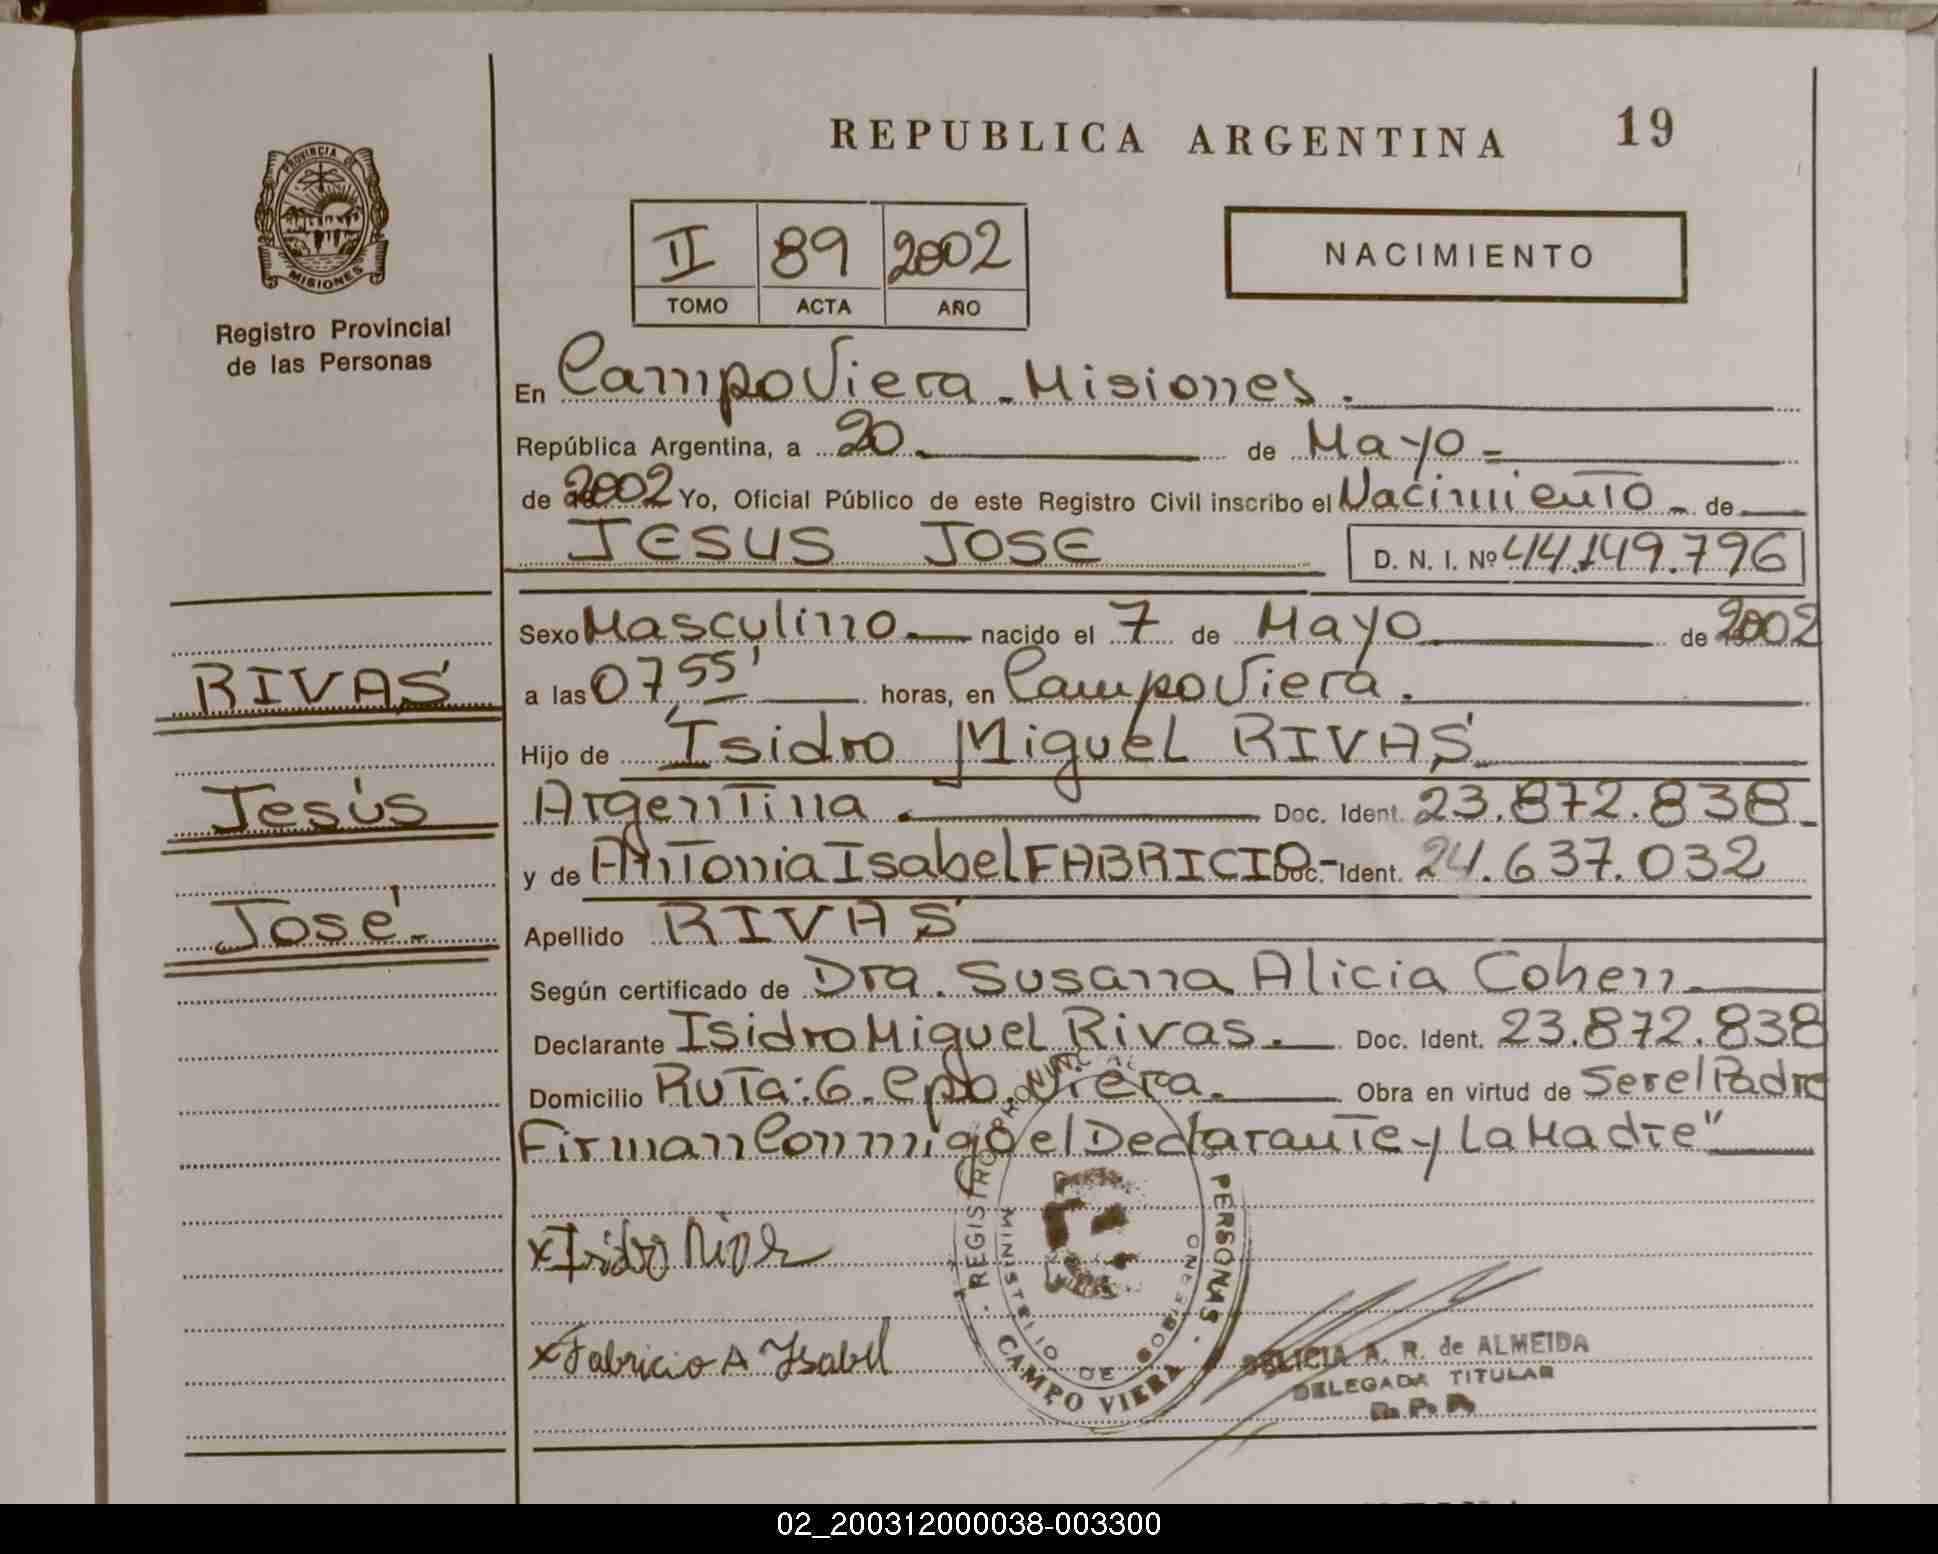 REPUBLICA ARGENTINA 19
PROVINCIA DE
MISIONES
Registro Provincial
de las Personas
II 89 2002
TOMO ACTA AÑO
NACIMIENTO
En Campo Viera - Misiones.
República Argentina, a 20 de Mayo =
de 2002 Yo, Oficial Público de este Registro Civil inscribo el Nacimiento - de
JESUS JOSE D. N. I. Nº 44.149.796
Sexo Masculino nacido el 7 de Mayo de 2002
RIVAS
a las 07,55' horas, en Campo Viera.
Hijo de Isidro Miguel RIVAS
Jesús
Argentina. Doc. Ident. 23.872.838-
y de Antonia Isabel FABRICIO- Doc. Ident. 24.637.032
José-
Apellido RIVAS
Según certificado de Dra. Susana Alicia Cohen
Declarante Isidro Miguel Rivas. Doc. Ident. 23.872.838
Domicilio Ruta: 6. Cpo. Viera. Obra en virtud de Ser el Padre
Firman Conmigo el Declarante y La Madre"
x Isidro Rivas
x Fabricio A Ysabel
REGISTRO PROVINCIAL PERSONAS
MINISTERIO DE GOBIERNO
CAMPO VIERA
DELICIA A. R. de ALMEIDA
DELEGADA TITULAR
02_200312000038-003300